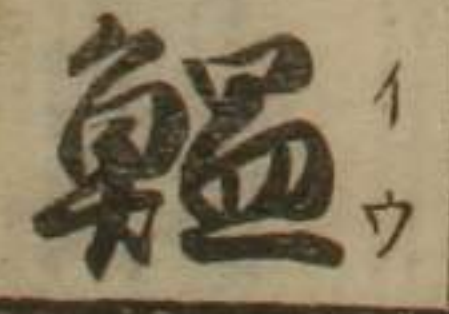 鰛
イウ